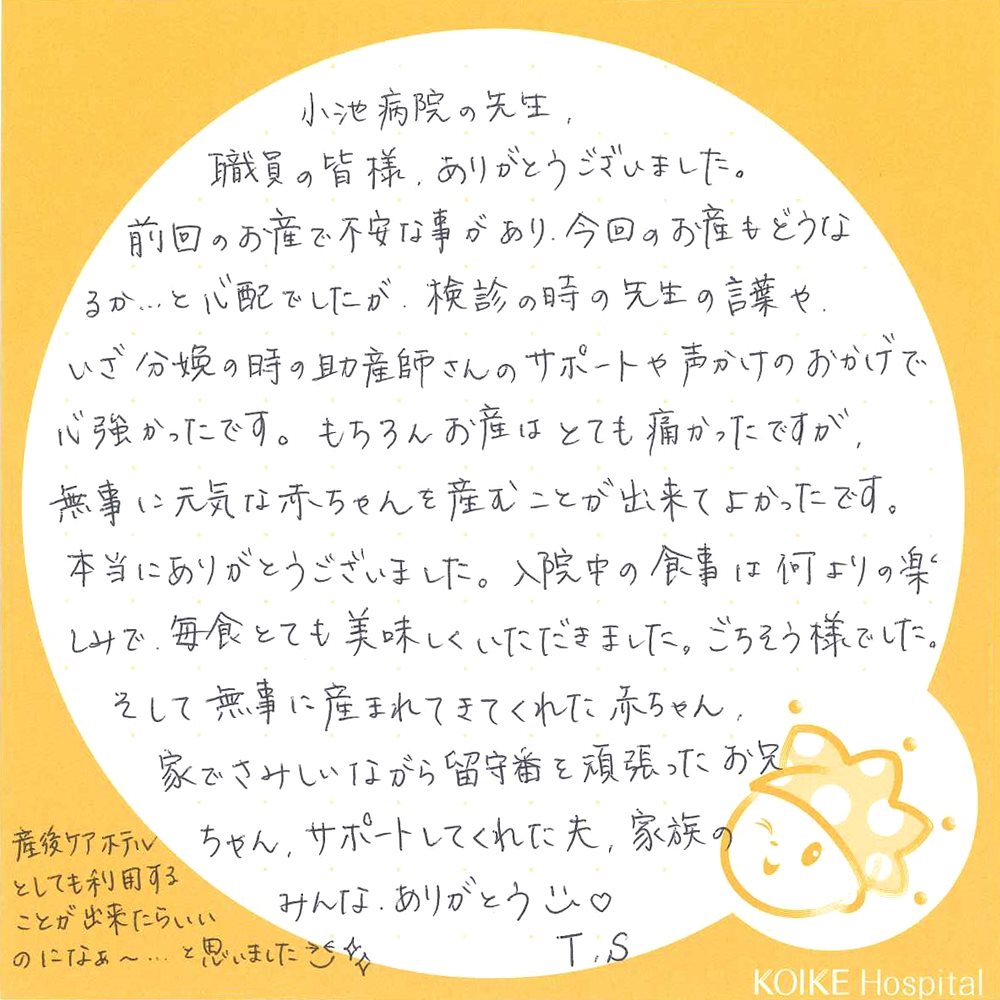 小池病院の先生、
職員の皆様、ありがとうございました。
前回のお産で不安な事があり、今回のお産もどうな
るか…と心配でしたが、検診の時の先生の言葉や、
いざ分娩の時の助産師さんのサポートや声かけのおかげで
心強かったです。もちろんお産はとても痛かったですが、
無事に元気な赤ちゃんを産むことが出来てよかったです。
本当にありがとうございました。入院中の食事は何よりの楽
しみで、毎食とても美味しくいただきました。ごちそう様でした。
そして無事に産まれてきてくれた赤ちゃん、
家でさみしいながら留守番を頑張ったお兄
ちゃん、サポートしてくれた夫、家族の
みんな、ありがとう
T.S
産後ケアホテル
としても利用する
ことが出来たらいい
のになぁ〜…と思いました
KOIKE Hospital